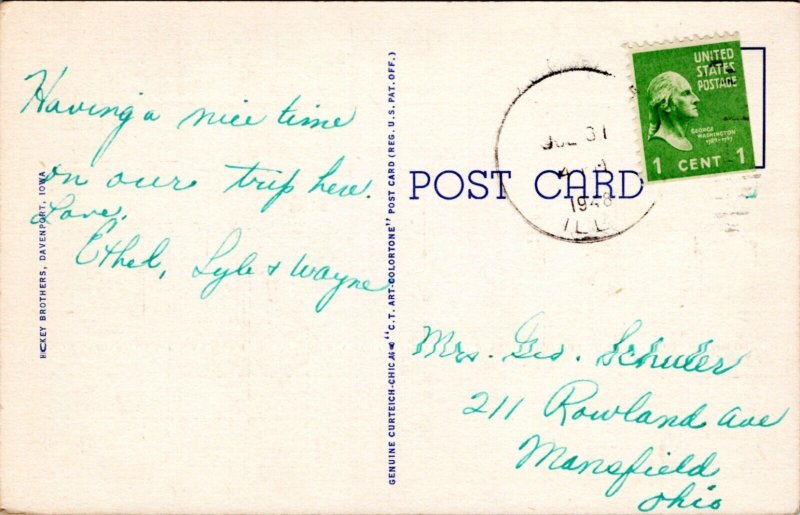 Having a nice time
on our trip here.
Love,
Ethel, Lyle & Wayne
HICKEY BROTHERS, DAVENPORT, IOWA
GENUINE CURTEICH-CHICAGO "C.T. ART-COLORTONE" POST CARD (REG. U.S. PAT. OFF.)
POST CARD
JUL 31
1948
ILL
UNITED
STATES
POSTAGE
GEORGE
WASHINGTON
1789-1797
1 CENT 1
Mrs. Geo. Schuler
211 Rowland Ave
Mansfield
Ohio